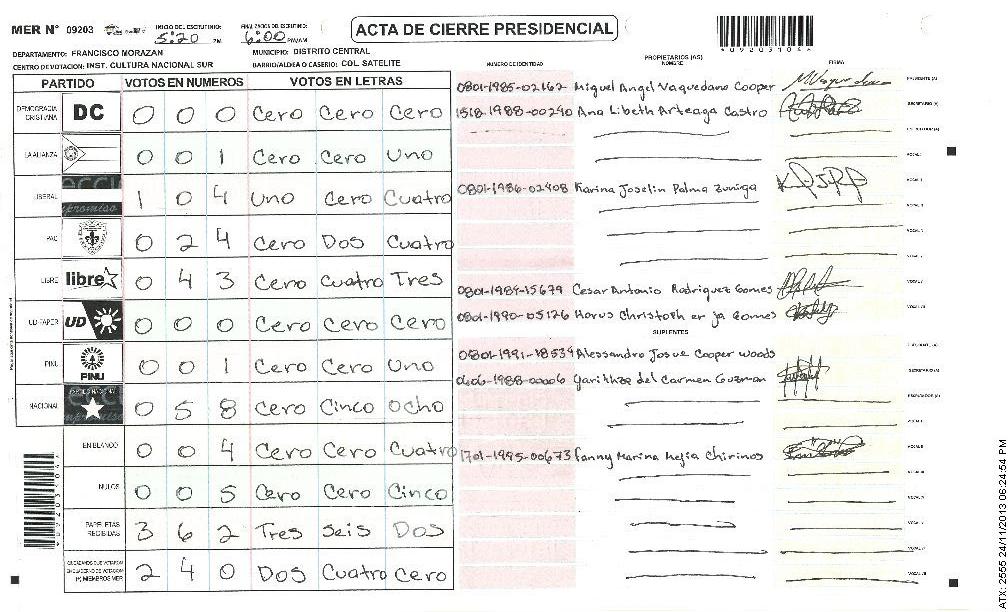 MER Nº 09203
INICIO DEL ESCRUTINIO: 5:20 PM
FINALIZACION DEL ESCRUTINIO: 6:00 PM/AM
ACTA DE CIERRE PRESIDENCIAL
DEPARTAMENTO: FRANCISCO MORAZAN
MUNICIPIO: DISTRITO CENTRAL
CENTRO DE VOTACION: INST. CULTURA NACIONAL SUR
BARRIO/ALDEA O CASERIO: COL SATELITE
PARTIDO VOTOS EN NUMEROS VOTOS EN LETRAS
DEMOCRACIA CRISTIANA DC 0 0 0 Cero Cero Cero
LA ALIANZA 0 0 1 Cero Cero Uno
LIBERAL 1 0 4 Uno Cero Cuatro
PAC 0 2 4 Cero Dos Cuatro
LIBRE libre 0 4 3 Cero Cuatro Tres
UD-FAPER UD 0 0 0 Cero Cero Cero
PINU PINU 0 0 1 Cero Cero Uno
NACIONAL 0 5 8 Cero Cinco Ocho
EN BLANCO 0 0 4 Cero Cero Cuatro
NULOS 0 0 5 Cero Cero Cinco
PAPELETAS RECIBIDAS 3 6 2 Tres Seis Dos
2 4 0 Dos Cuatro Cero
NUMERO DE IDENTIDAD
PROPIETARIOS (AS)
NOMBRE
FIRMA
0801-1985-02162 Miguel Angel Vaquedano Cooper PRESIDENTE (A)
1518-1988-00290 Ana Libeth Arteaga Castro SECRETARIO (A)
0801-1986-02408 Karina Joselin Palma Zuniga
0801-1984-15679 Cesar Antonio Rodriguez Gomes
0801-1990-05126 Horus Christoth er ja Gomes
SUPLENTES
0801-1991-18534 Alessandro Josue Cooper Woods
0606-1988-00006 Garithza del Carmen Guzman SECRETARIO (A)
1701-1995-00673 Fanny Marina Mejia Chirinos
ATX: 2555 24/11/2013 06:24:54 PM